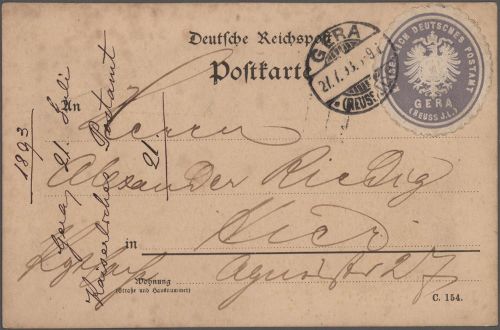 Deutsche Reichspost
Postkarte
GERA
21.7.93. 8-9.V.
(REUSS. J.L.)
KAISERLICH DEUTSCHES POSTAMT
GERA
(REUSS J.L.)
An
Herrn
Alexander Riedig
in Hier
Agnesstr 27
Wohnung
(Straße und Hausnummer)
C. 154.
Kaiserliches Postamt 21
Gera, 21 Juli
1893